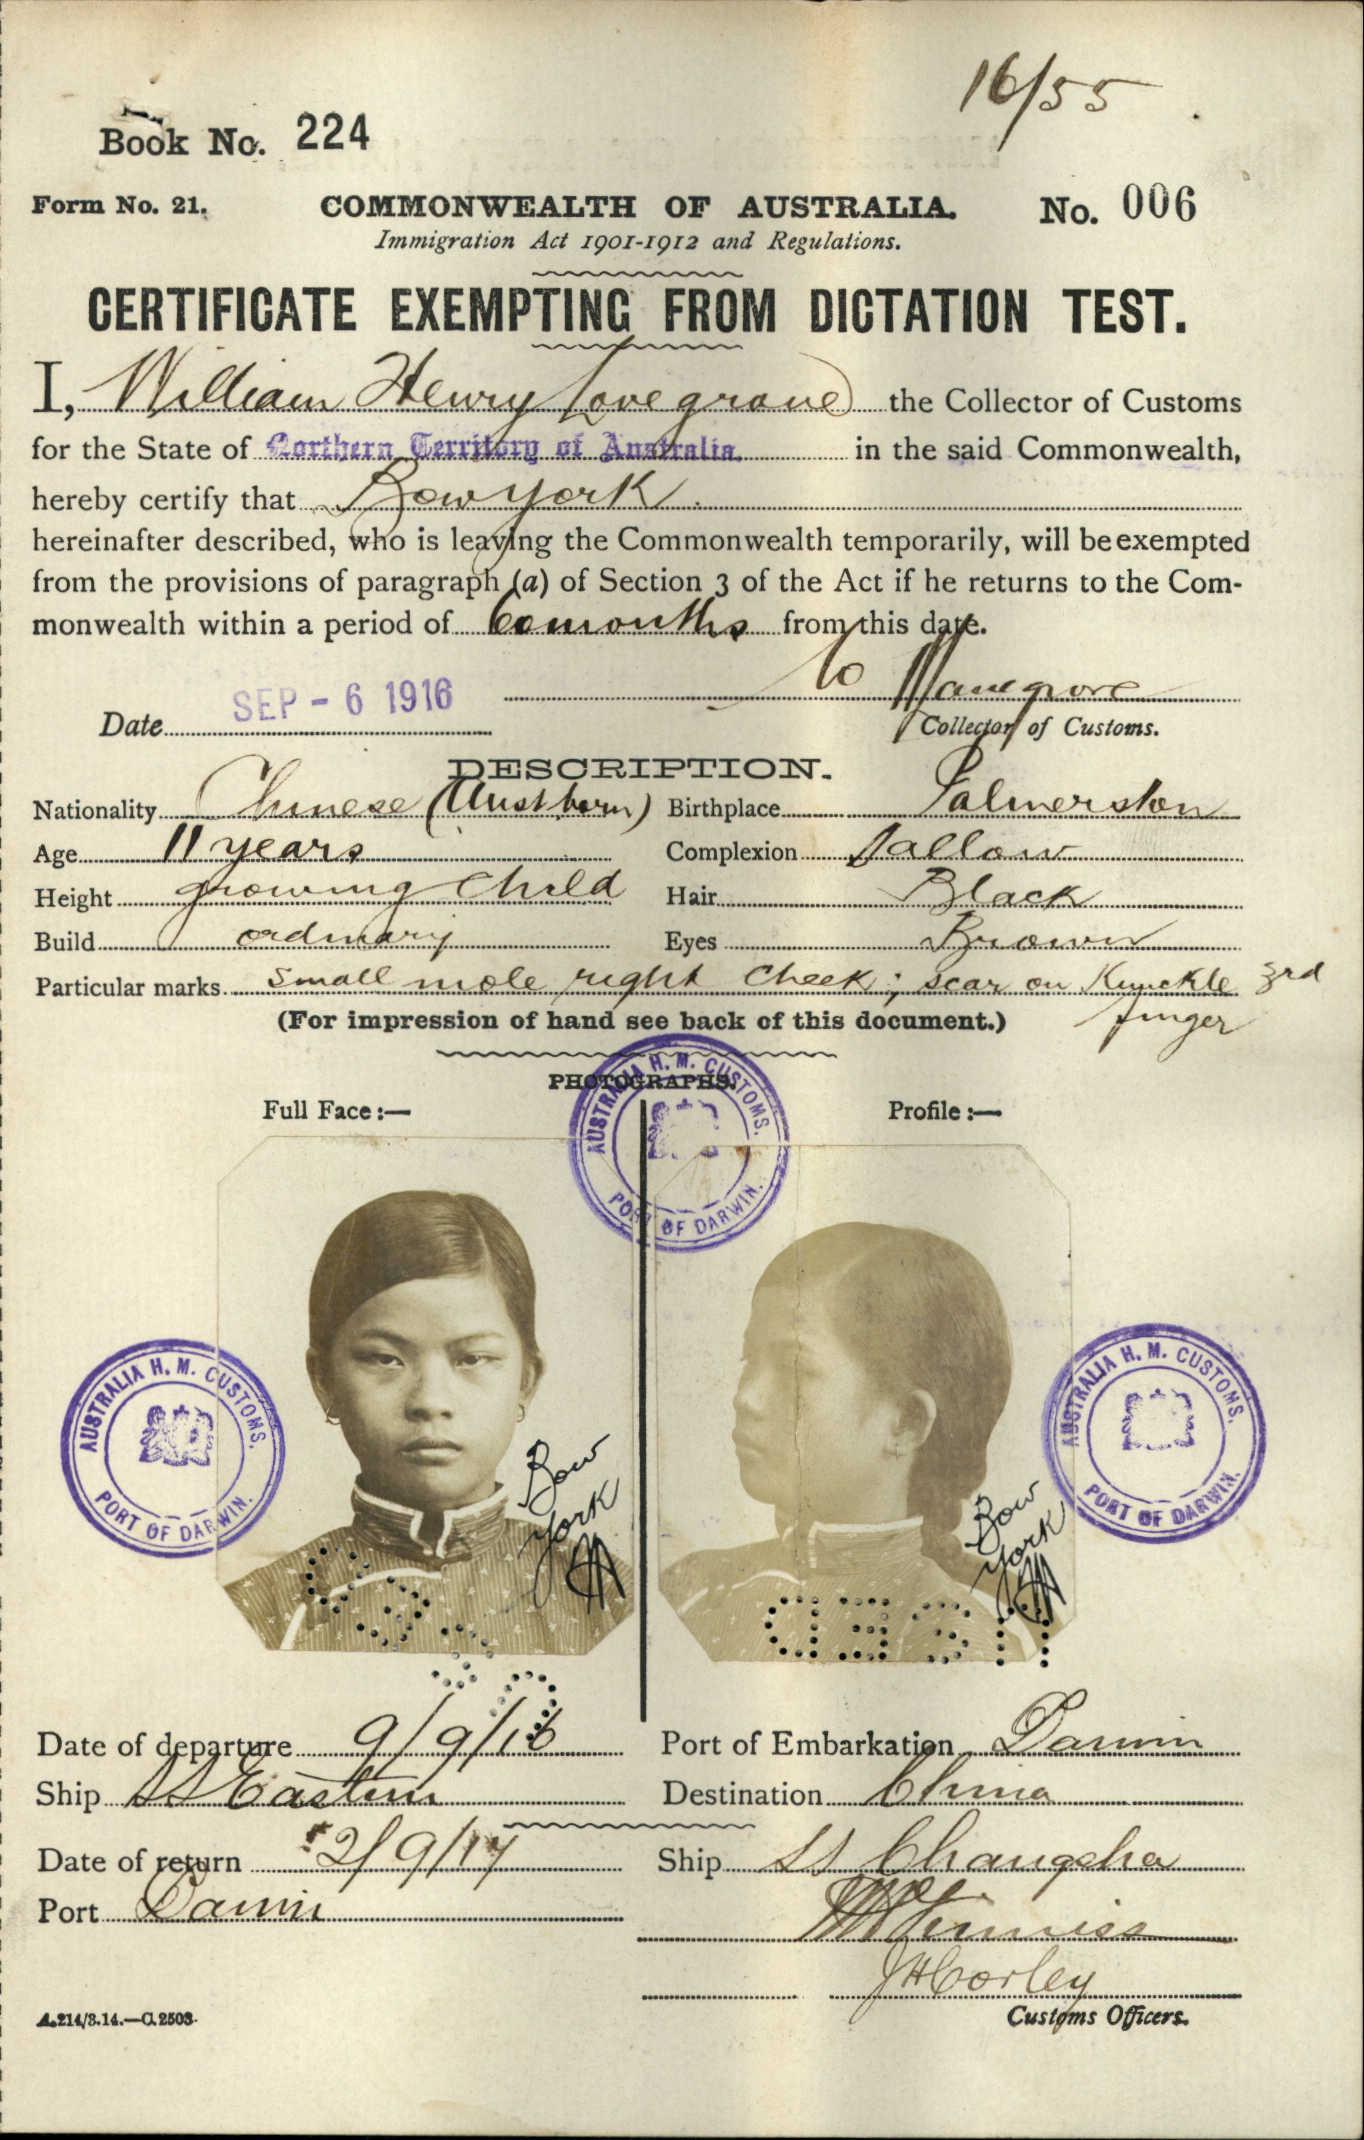 16/55
Book No. 224
Form No. 21. COMMONWEALTH OF AUSTRALIA. No. 006
Immigration Act 1901-1912 and Regulations.
CERTIFICATE EXEMPTING FROM DICTATION TEST.
I, William Henry Lovegrove the Collector of Customs
for the State of Northern Territory of Australia. in the said Commonwealth,
hereby certify that Bow York.
hereinafter described, who is leaving the Commonwealth temporarily, will be exempted
from the provisions of paragraph (a) of Section 3 of the Act if he returns to the Com-
monwealth within a period of months from this date.
Date SEP - 6 1916
Collector of Customs.
DESCRIPTION.
Nationality Chinese (Aust born) Birthplace Palmerston
Age 11 years Complexion Sallow
Height growing child Hair Black
Build ordinary Eyes Brown
Particular marks small mole right cheek; scar on Knuckle 3rd
finger
(For impression of hand see back of this document.)
PHOTOGRAPHS.
Full Face:— Profile:—
AUSTRALIA H. M. CUSTOMS. PORT OF DARWIN.
AUSTRALIA H. M. CUSTOMS. PORT OF DARWIN.
AUSTRALIA H. M. CUSTOMS. PORT OF DARWIN.
Bow
York
Bow
York
Date of departure 9/9/16 Port of Embarkation Darwin
Ship SS Eastern Destination China
Date of return 2/9/17 Ship SS Changsha
Port Darwin
JHCorley
Customs Officers.
A.214/3.14.—C.2503.